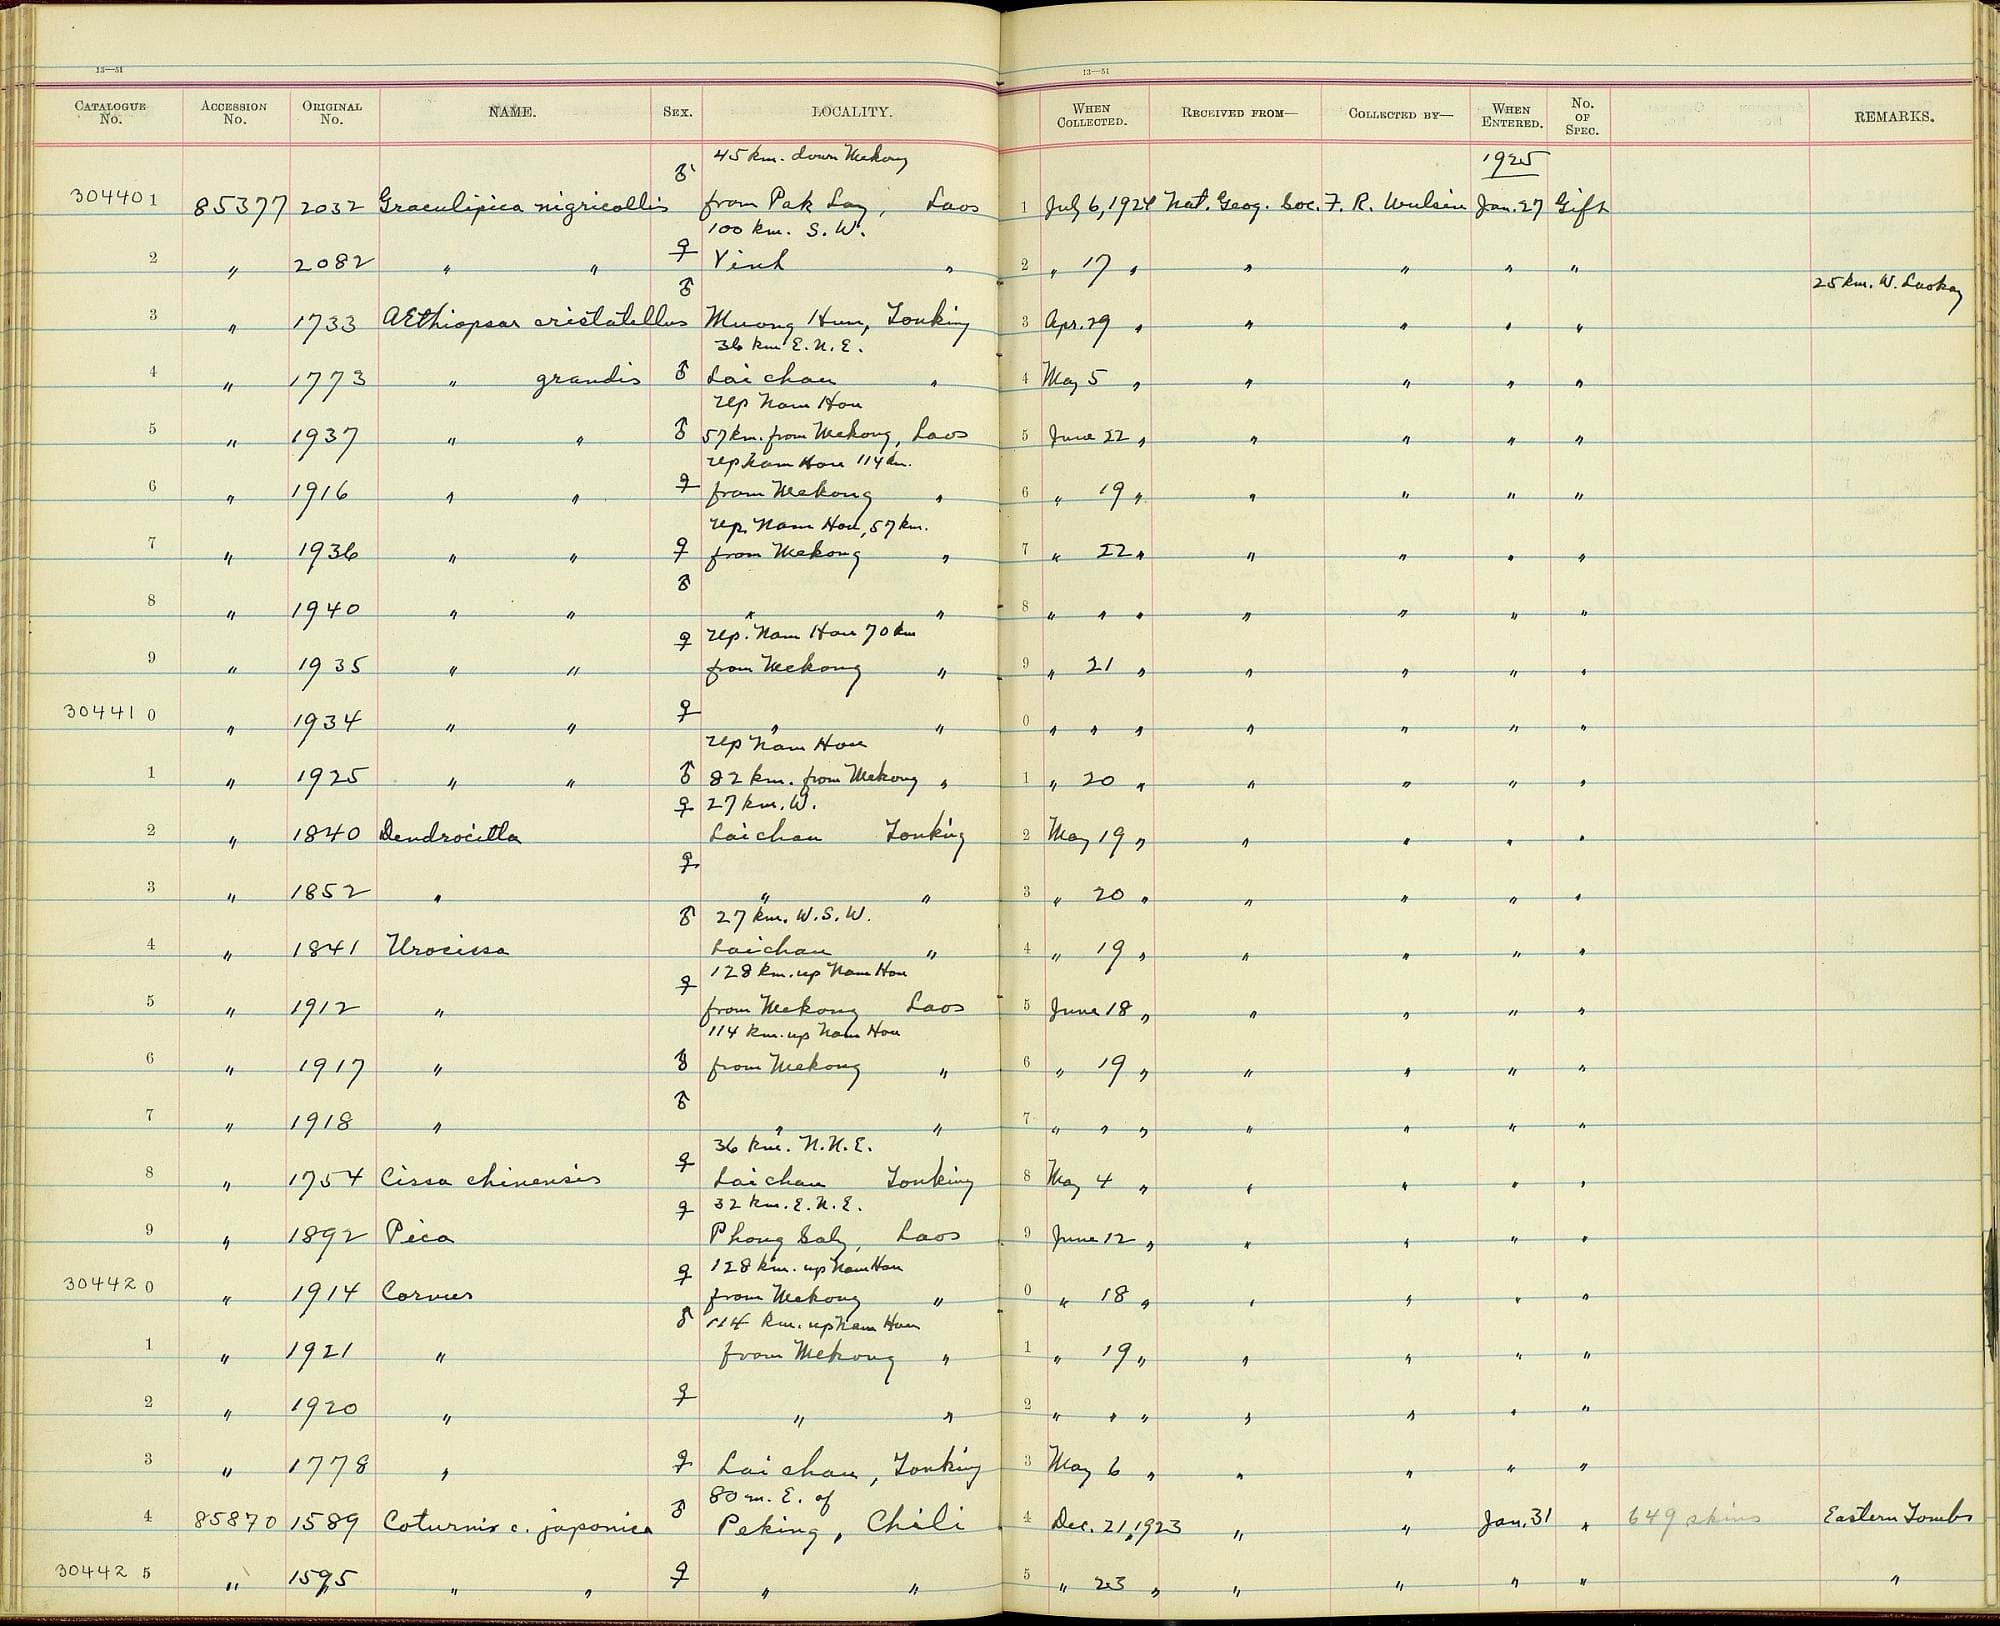 13—51 13—51
CATALOGUE No. ACCESSION No. ORIGINAL No. NAME. SEX. LOCALITY. WHEN COLLECTED. RECEIVED FROM— COLLECTED BY— WHEN ENTERED. No. OF SPEC. REMARKS.
45 km. down Mekong 1925
304401 85377 2032 Graculipica nigricollis ♂ from Pak Lay, Laos 1 July 6, 1924 Nat. Geog. Soc. F. R. Wulsin Jan. 27 Gift
100 km. S. W.
2 " 2082 " " ♀ Vinh " 2 " 17 " " " " "
25 km. W. Laokay
3 " 1733 Æthiopsar cristatellus ♂ Muong Hum, Tonking 3 Apr. 29 " " " " "
36 km E. N. E.
4 " 1773 " grandis ♂ Lai chau " 4 May 5 " " " " "
up Nam Hou
5 " 1937 " " ♂ 57 km. from Mekong, Laos 5 June 22 " " " " "
up Nam Hou 114 km.
6 " 1916 " " ♀ from Mekong " 6 " 19 " " " " "
up. Nam Hou, 57 km.
7 " 1936 " " ♀ from Mekong " 7 " 22 " " " " "
8 " 1940 " " ♂ " " 8 " " " " " " "
up. Nam Hou 70 km
9 " 1935 " " ♀ from Mekong " 9 " 21 " " " " "
304410 " 1934 " " ♀ " " 0 " " " " " " "
up Nam Hou
1 " 1925 " " ♂ 82 km. from Mekong " 1 " 20 " " " " "
27 km. W.
2 " 1840 Dendrocitta ♀ Laichau Tonking 2 May 19 " " " " "
3 " 1852 " ♀ " " 3 " 20 " " " " "
27 km. W. S. W.
4 " 1841 Urocissa ♂ Laichau " 4 " 19 " " " " "
128 km. up Nam Hou
5 " 1912 " ♀ from Mekong Laos 5 June 18 " " " " "
114 km. up Nam Hou
6 " 1917 " ♂ from Mekong " 6 " 19 " " " " "
7 " 1918 " ♂ " " 7 " " " " " " "
36 km. N. N. E.
8 " 1754 Cissa chinensis ♀ Laichau Tonking 8 May 4 " " " " "
32 km. E. N. E.
9 " 1892 Pica ♀ Phong Saly, Laos 9 June 12 " " " " "
128 km. up Nam Hou
304420 " 1914 Corvus ♀ from Mekong " 0 " 18 " " " " "
114 km. up Nam Hou
1 " 1921 " ♂ from Mekong " 1 " 19 " " " " "
2 " 1920 " ♀ " " 2 " " " " " " "
3 " 1778 " ♀ Lai chau, Tonking 3 May 6 " " " " "
80 m. E. of
4 85870 1589 Coturnix c. japonica ♂ Peking, Chili 4 Dec. 21, 1923 " " Jan. 31 " 649 skins Eastern Tombs
304425 " 1595 " " ♀ " " 5 " 23 " " " " " "